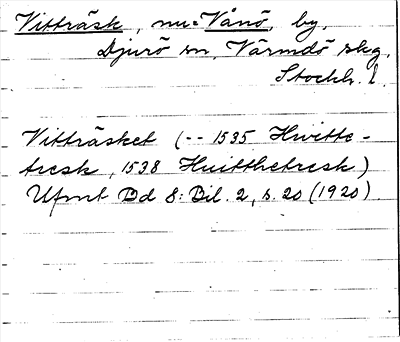 Vitträsk, nu = Vånö, by,
Djurö sn, Värmdö skg,
Stockh. l.
Vitträsket (-- 1535 Hwitte-
tresk, 1538 Huitthetresk)
Ufmt Bd 8: Bil. 2, s. 20 (1920).